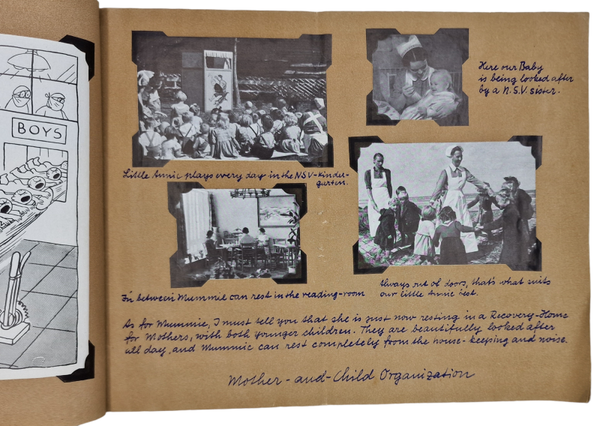 BOYS
Here our Baby
is being looked after
by a N.S.V. sister.
Little Annic plays every day in the NSV-Kinder-
garten.
Always out of doors, that's what suits
our little Anne best.
In between Mummie can rest in the reading-room
As for Mummie, I must tell you that she is just now resting in a Recovery-Home
for Mothers, with both younger children. They are beautifully looked after
all day, and Mummie can rest completely from the house-keeping and noise.
Mother-and-Child Organization